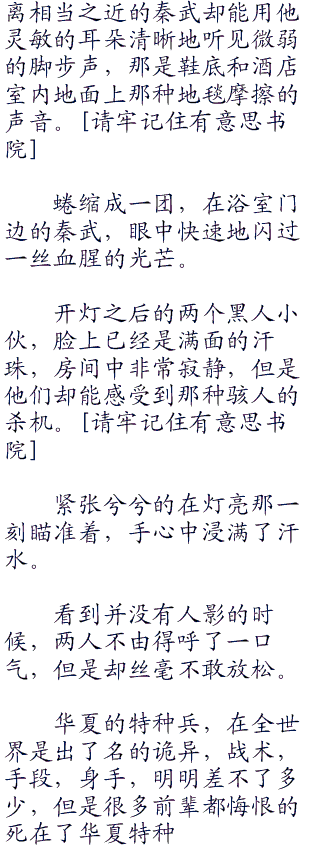 离相当之近的秦武却能用他
灵敏的耳朵清晰地听见微弱
的脚步声，那是鞋底和酒店
室内地面上那种地毯摩擦的
声音。[请牢记住有意思书
院]
蜷缩成一团，在浴室门
边的秦武，眼中快速地闪过
一丝血腥的光芒。
开灯之后的两个黑人小
伙，脸上已经是满面的汗
珠，房间中非常寂静，但是
他们却能感受到那种骇人的
杀机。[请牢记住有意思书
院]
紧张兮兮的在灯亮那一
刻瞄准着，手心中浸满了汗
水。
看到并没有人影的时
候，两人不由得呼了一口
气，但是却丝毫不敢放松。
华夏的特种兵，在全世
界是出了名的诡异，战术，
手段，身手，明明差不了多
少，但是很多前辈都悔恨的
死在了华夏特种